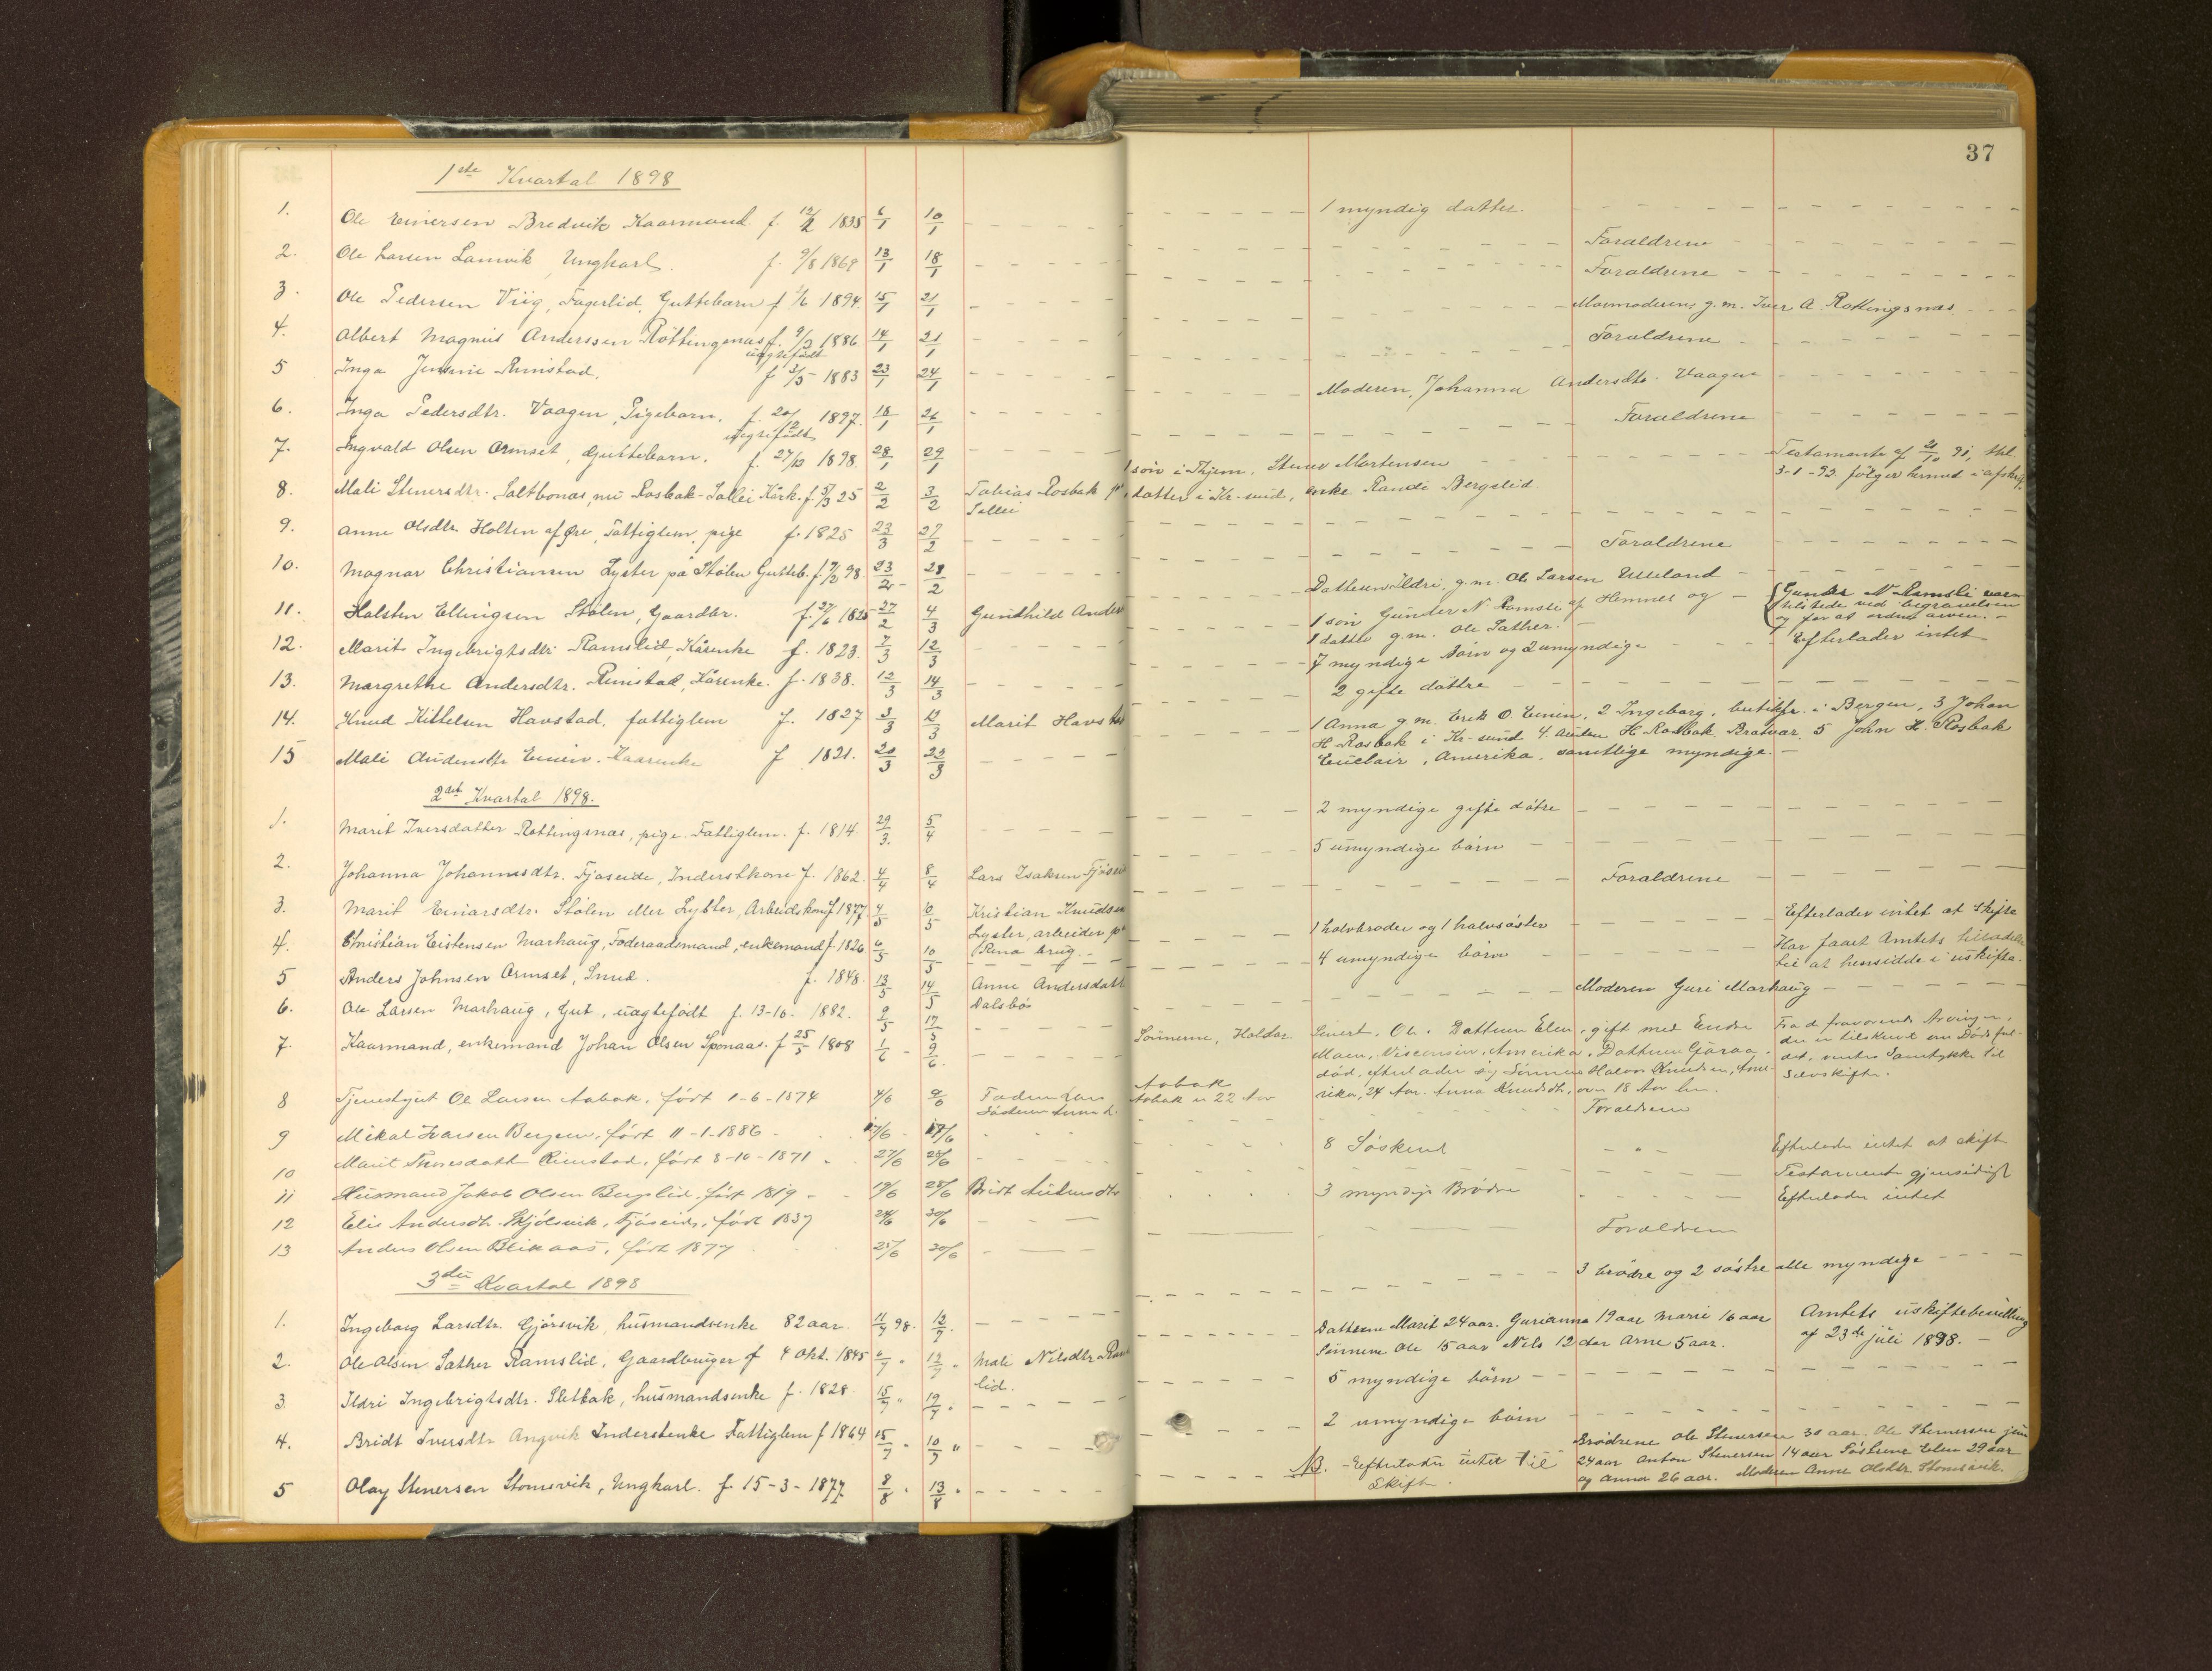 37
1ste Kvartal 1898
1. Ole Einersen Bredvik Kaarmand. f. 12/2 1835 6/1 10/1 1 myndig datter.
2. Ole Larsen Lamvik, Ungkarl. f. 9/8 1869 13/1 18/1 Forældrene
3. Ole Pedersen Viig, Fagerlid, Guttebarn f. 1894. 15/1 21/1 Forældrene
4. Albert Magnus Anderssen Röttingsnæs f. 1886 14/1 21/1 Mormoderen g. m. Iver A. Røttingsnæs
uægtefødt
5 Inga Rimstad. f 3/5 1883 23/1 24/1 Forældrene
6. Inga Pedersdtr. Vaagen, Pigebarn. f. 20/12 1897. 18/1 26/1 Moderen, Johanna Andersdtr. Vaagen
uægtefødt
7. Ingvald Olsen Ormset, Guttebarn. f. 27/12 1898 28/1 29/1 Forældrene
8. Mali Stenersdtr. Saltbonæs, nu Rosbak-Sollei Kårk. f. 25 2/2 3/2 Tobias Rosbak
Sollei
1 søn i Thjem. Stener Mortensen
datter i Kr-sund, enke Randi Bergslid
Testamente af 91, thl.
3-1-92 følger hermed i afskr.
9. Anne Olsdtr. Holten af Øre, Fattiglem, pige f. 1825 23/3 27/2
10. Magnar Christiansen Lyster på Stølen Gutteb. f. 98. 23/2 28/2 Forældrene
11. Halsten Ellingsen Stølen, Gaardbr. 27/2 4/3 Gundhild Anders
Datteren Ildri, g. m. Ole Larsen
12. Marit Ingebrigtsdtr Ramslid, Kårenke f. 1823. 7/3 12/3
1 søn Gunder N. Ramsli af Hemnes og
1 datter g. m. Ole Sæther.
Gunder N. Ramsli var
tilstede ved begravelsen
og før at ordne arven.
13. Margrethe Andersdtr. Rimstad, Kårenke. f. 1838. 12/3 14/3 7 myndige børn og 2 umyndige Efterlader intet
14. Knud Kittelsen Havstad, fattiglem f. 1827 3/3 12/3 Marit Havstad 2 gifte døttre
15 Mali Audensdtr Einen. Kaarenke f 1821. 20/3 22/3
1 Anna g. m. Erik O. Einen, 2 Ingeborg, butikfr. i Bergen, 3 Johan
H. Rosbak i Kr-sund 4 H. Rosbak Bratvær. 5 John H. Rosbak
Amerika. samtlige myndige.
2det Kvartal 1898.
1. Marit Iversdatter Røttingsnæs, pige. Fattiglem. f. 1814. 29/3. 5/4 2 myndige gifte døtre
2. Johanna Johannesdtr. Fjøseide, Inderstkone f. 1862. 4/4 8/4 Lars Isaksen Fjøseid 5 umyndige børn
3. Marit Einarsdtr. Stølen eller Lyster, Arbeidskone f 1877 4/5 6/5 Kristian Knudsen
Lyster, arbeider på
brug.
Forældrene
4. Christian Eistensen Marhaug, Føderaadsmand, enkemand f. 1826 6/5 10/5 1 halvbroder og 1 halvsøster Efterlader intet at skifte
5 Anders Johnsen Ormset, Smed. f. 1848. 13/5 14/5 Anne Andersdatt
Dalsbø
4 umyndige børn
Har faaet Amtets tilladelse
til at hensidde i uskifte.
6. Ole Larsen Marhaug, Gut, uægtefødt f. 13-10. 1882. 9/5 17/5 Moderen Guri Marhaug
7. Kaarmand, enkemand Johan Olsen f 25/5 1808 1/6 9/6.
Sönnerne, Haldor. Sivert, Ole. Datteren Elen, gift med Endre
Moen, Viscensin, Amerika. Datteren
död, efterlader sig Sønnen Halvor Knudsen, Ame-
rika, 24 Aar. Anna Knudsdtr, over 18 Aar
Fra de fraværende Arvinger,
der er tilskrevet om Dødsfal-
det, ventes Samtykke til
Selvskifte.
8 Tjenestgut Ole Larsen Aabak, født 1-6-1874 4/6 9/6 Faderen Lars Aabak
Søsteren Anna L. Aabak 22 Aar
9 Mikal Ivarsen Bergem, født 11-1-1886 17/6 Forældrene
10 Marit Rimstad, født 8-10-1871 27/6 28/6 8 Søskend Efterlader intet at skift
11 Husmand Jakob Olsen Bergslid født 1819 19/6 25/6 Bridt Testamente gjensidigt
12 Elis Andersdtr. Skjølsvik, Fjøseide, født 1837 24/6 30/6 3 myndige Brødre Efterlader intet
13 Anders Olsen Blikaas, født 1877 25/6 30/6 Forældrene
3die Kvartal 1898
1. Ingeborg Larsdtr. Gjørsvik, husmandsenke 82 aar. 11/7 98. 12/7. 3 brødre og 2 søstre alle myndige
2. Ole Olsen Sæther Ramslid, Gaardbruger f 4 Okt. 1845 6/7 12/7 Mali Nilsdtr Ram
lid.
Døttrene Marit 24 aar. Gurianna 19 aar Marie 16 aar
Sønnerne Ole 15 aar Nils 12 aar Arne 5 aar.
Amtets uskiftebevilling
af 23de juli 1898.
3. Ildri Ingebrigtsdtr. Sletbak, husmandsenke f. 1828. 15/7 19/7. 5 myndige børn
4. Bridt Iversdtr Angvik Inderstenke Fattiglem f 1864 15/7 2 umyndige børn
5 Olay Stenersen Stomsvik, Ungkarl. f. 15-3-1877 8/8 13/8
NB. - Efterlader intet til
Skifte.
Brødrene Ole Stenersen 30 aar. Ole Stenersen jun
24 aar Anton Stenersen 14 aar Søstrene Elen 29 aar
og Anna 26 aar. Moderen Anne Olsdtr Stomsvik.